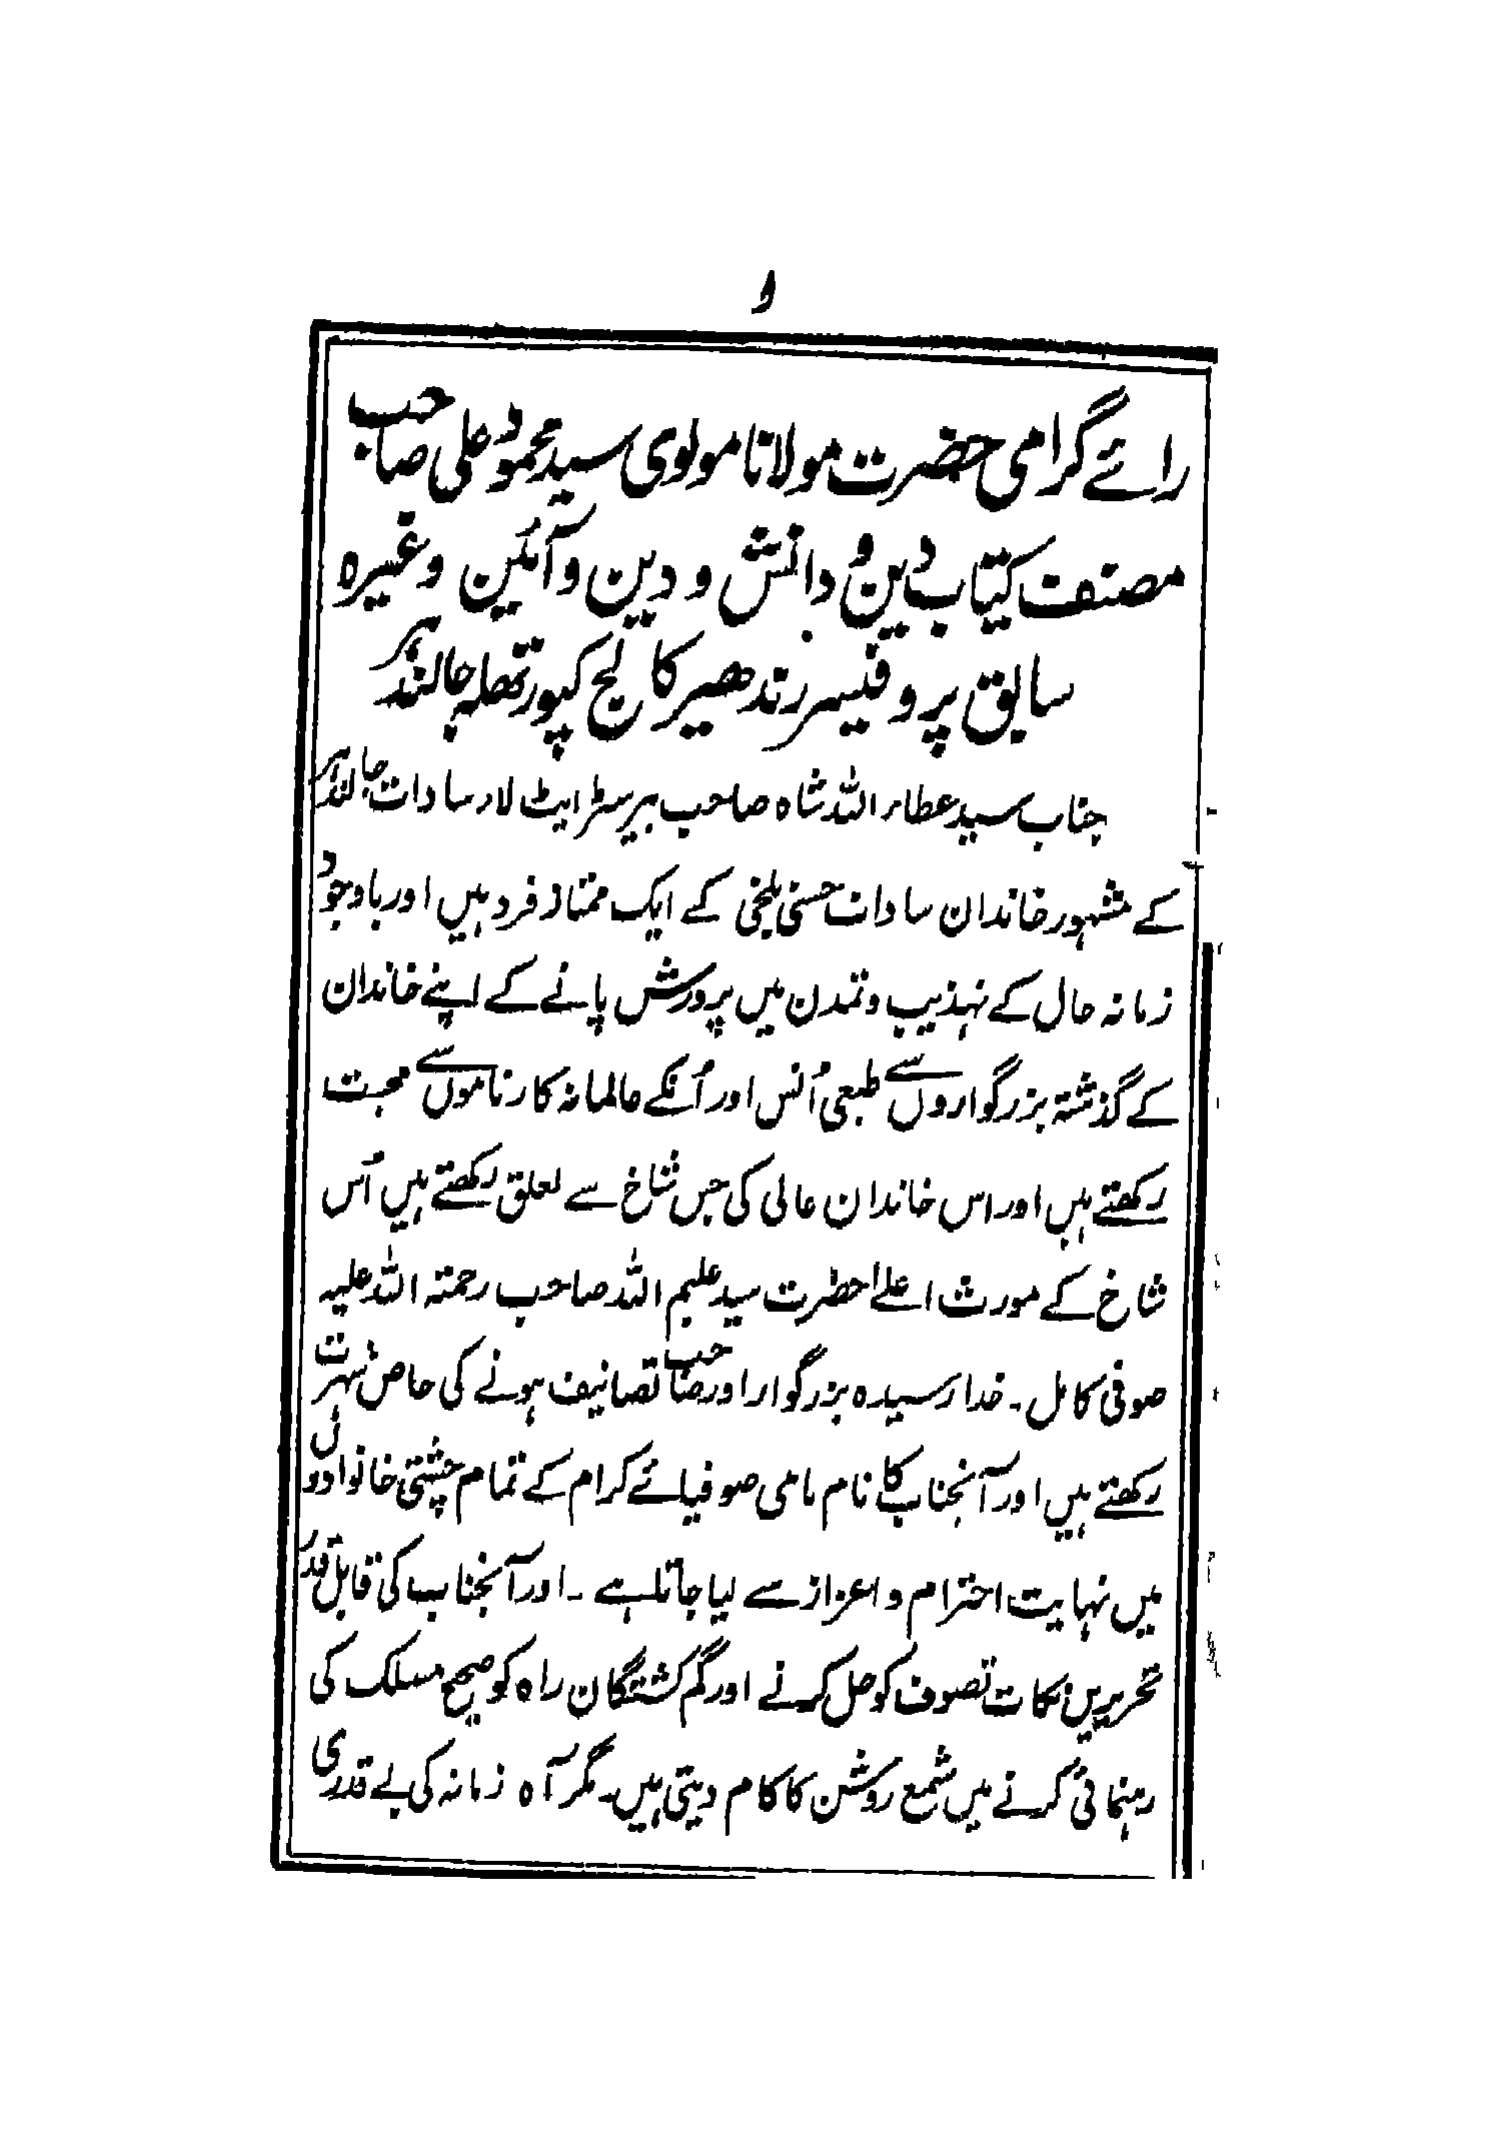 و
رائے گرامی حضرت مولانا مولوی سید محمود علی صاحب
مصنف کتاب دین و دانش و دین و آئین وغیرہ
سابق پروفیسر رندھیر کالج کپورتھلہ جالندھر
جناب سید عطاء اللہ شاہ صاحب بیرسٹر ایٹ لاء سادات جالندھر
کے مشہور خاندان سادات حسنی بلخی کے ایک ممتاز فرد ہیں اور باوجود
زمانہ حال کے تہذیب و تمدن میں پرورش پانے کے اپنے خاندان
کے گذشتہ بزرگواروں سے طبعی اُنس اور اُنکے عالمانہ کارناموں سے محبت
رکھتے ہیں اور اس خاندان عالی کی جس شاخ سے تعلق رکھتے ہیں اُس
شاخ کے مورث اعلےٰ حضرت سید علیم اللہ صاحب رحمتہ اللہ علیہ
صوفی کامل۔ خدا رسیدہ بزرگوار اور صاحب تصانیف ہونے کی خاص شہرت
رکھتے ہیں اور آنجناب کا نام نامی صوفیائے کرام کے تمام چشتی خانوادوں
میں نہایت احترام و اعزاز سے لیا جاتا ہے ۔ اور آنجناب کی قابل قدر
تحریریں نکات تصوف کو حل کرنے اور گم گشتگان راہ کو صحیح مسلک کی
رہنمائی کرنے میں شمع روشن کا کام دیتی ہیں۔ مگر آہ زمانہ کی بے قدری